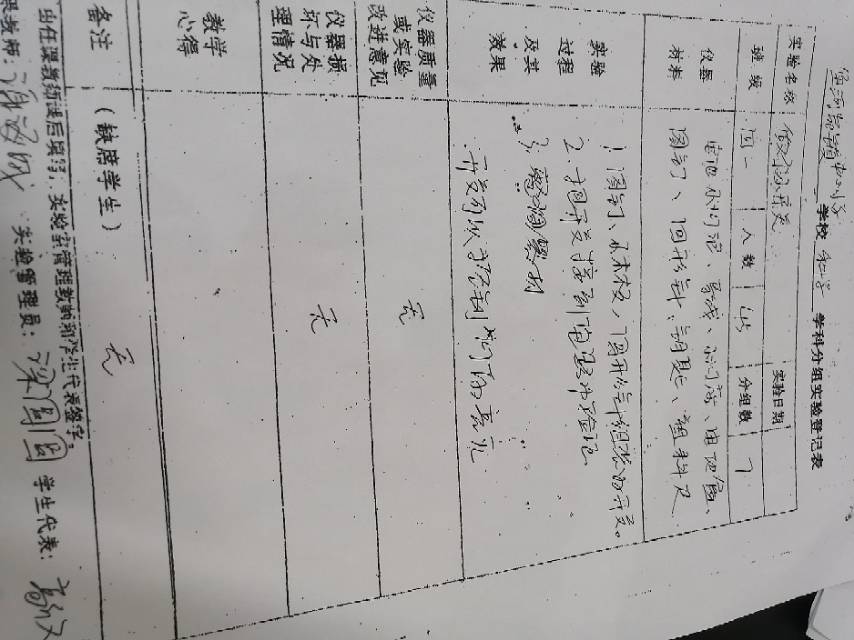 中小学 学校 科学 学科分组实验登记表
实验名称 做个小开关 实验日期
班级 四一 人数 45 分组数 7
仪器材料 电池 小灯泡、导线、小灯座、电池盒、
图钉、回形针、钥匙、塑料尺
实验过程及其效果 1、图钉、小木板、回形针组装为开关。
2、把开关接到电路中验证
3、观察
开关可以控制灯泡的亮灭
仪器质量或实验改进意见 无
仪器损坏与处理情况 无
教学心得
备注 (缺席学生) 无
由任课教师课后填写,实验室管理教师和学生代表签字。
课教师: 实验管理员: 梁圆圆 学生代表: